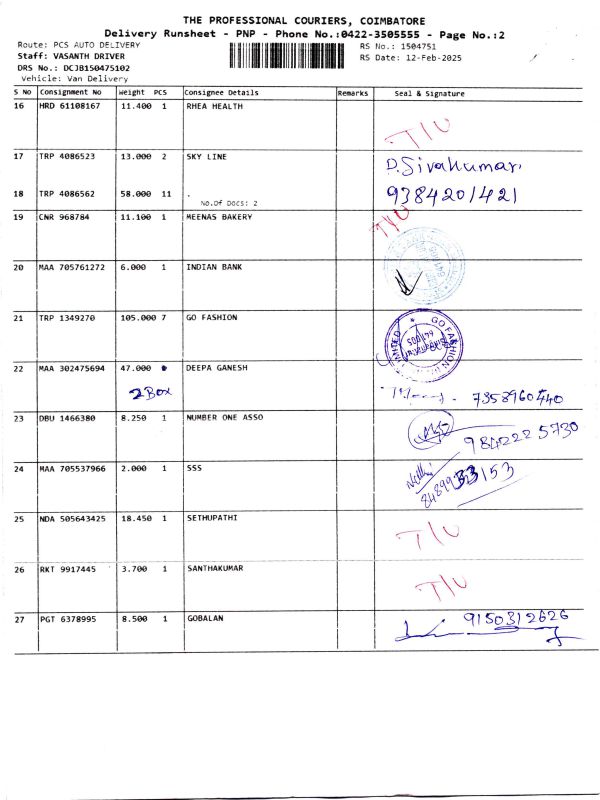 THE PROFESSIONAL COURIERS, COIMBATORE
Delivery Runsheet - PNP - Phone No.:0422-3505555 - Page No.:2
Route: PCS AUTO DELIVERY RS No.: 1504751
Staff: VASANTH DRIVER RS Date: 12-Feb-2025
DRS No.: DCJB150475102
Vehicle: Van Delivery
S No Consignment No Weight PCS Consignee Details Remarks Seal & Signature
16 HRD 61108167 11.400 1 RHEA HEALTH T/U
17 TRP 4086523 13.000 2 SKY LINE D.Sivakumar
18 TRP 4086562 58.000 11 . 9384201421
No.Of Docs: 2
19 CNR 968784 11.100 1 MEENAS BAKERY T/U
20 MAA 705761272 6.000 1 INDIAN BANK
21 TRP 1349270 105.000 7 GO FASHION GO FASHION
22 MAA 302475694 47.000 DEEPA GANESH
2 Box 7358960440
23 DBU 1466380 8.250 1 NUMBER ONE ASSO
984222 5730
24 MAA 705537966 2.000 1 SSS
25 NDA 505643425 18.450 1 SETHUPATHI T/U
26 RKT 9917445 3.700 1 SANTHAKUMAR T/U
27 PGT 6378995 8.500 1 GOBALAN 9150312626